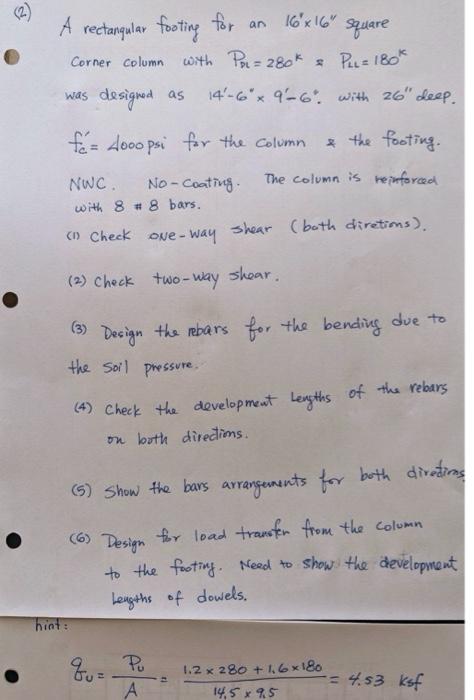 (2)
A rectangular footing for an 16"x16" square
Corner column with P_DL = 280^k & P_LL = 180^k
was designed as 14'-6" x 9'-6". with 26" deep.
f_c' = 4000 psi for the column & the footing.
NWC. No-Coating. The column is reinforced
with 8 # 8 bars.
(1) Check one-way shear (both diretions).
(2) Check two-way shear.
(3) Design the rebars for the bending due to
the soil pressure.
(4) Check the development lengths of the rebars
on both directions.
(5) Show the bars arrangements for both diretions
(6) Design for load transfer from the column
to the footing. Need to show the development
lengths of dowels.
hint:
q_u = P_u / A = (1.2 x 280 + 1.6 x 180) / (14.5 x 9.5) = 4.53 ksf